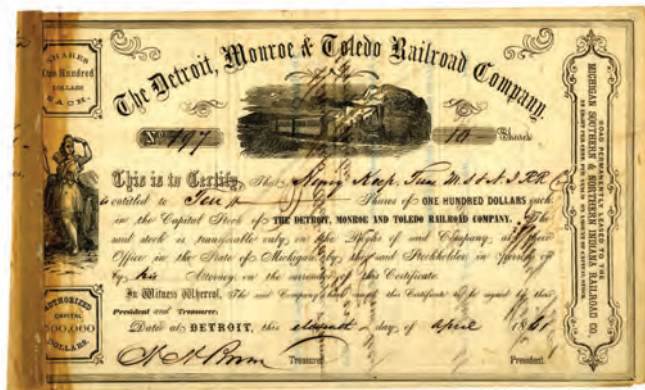 SHARES
One Hundred
DOLLARS
EACH.
The Detroit, Monroe & Toledo Railroad Company.
No. 197
10 Shares
This is to Certify, That Henry Keep, Treas M.S & N.I R.R Co
is entitled to Ten Shares of ONE HUNDRED DOLLARS each
in the Capital Stock of THE DETROIT, MONROE AND TOLEDO RAILROAD COMPANY. The
said stock is transferable only on the Books of said Company, at their
Office in the State of Michigan by the said Stockholder in person or
by his Attorney on the surrender of this Certificate.
In Witness Whereof, The said Company shall cause this Certificate to be signed by their
President and Treasurer.
Dated at DETROIT, this eleventh day of April 1861
Treasurer
President.
AUTHORIZED
CAPITAL
500,000
DOLLARS.
ROAD PERMANENTLY LEASED TO THE
MICHIGAN SOUTHERN & NORTHERN INDIANA RAILROAD CO.
AT EIGHT PER CENT PER ANNUM ON AMOUNT OF CAPITAL STOCK.